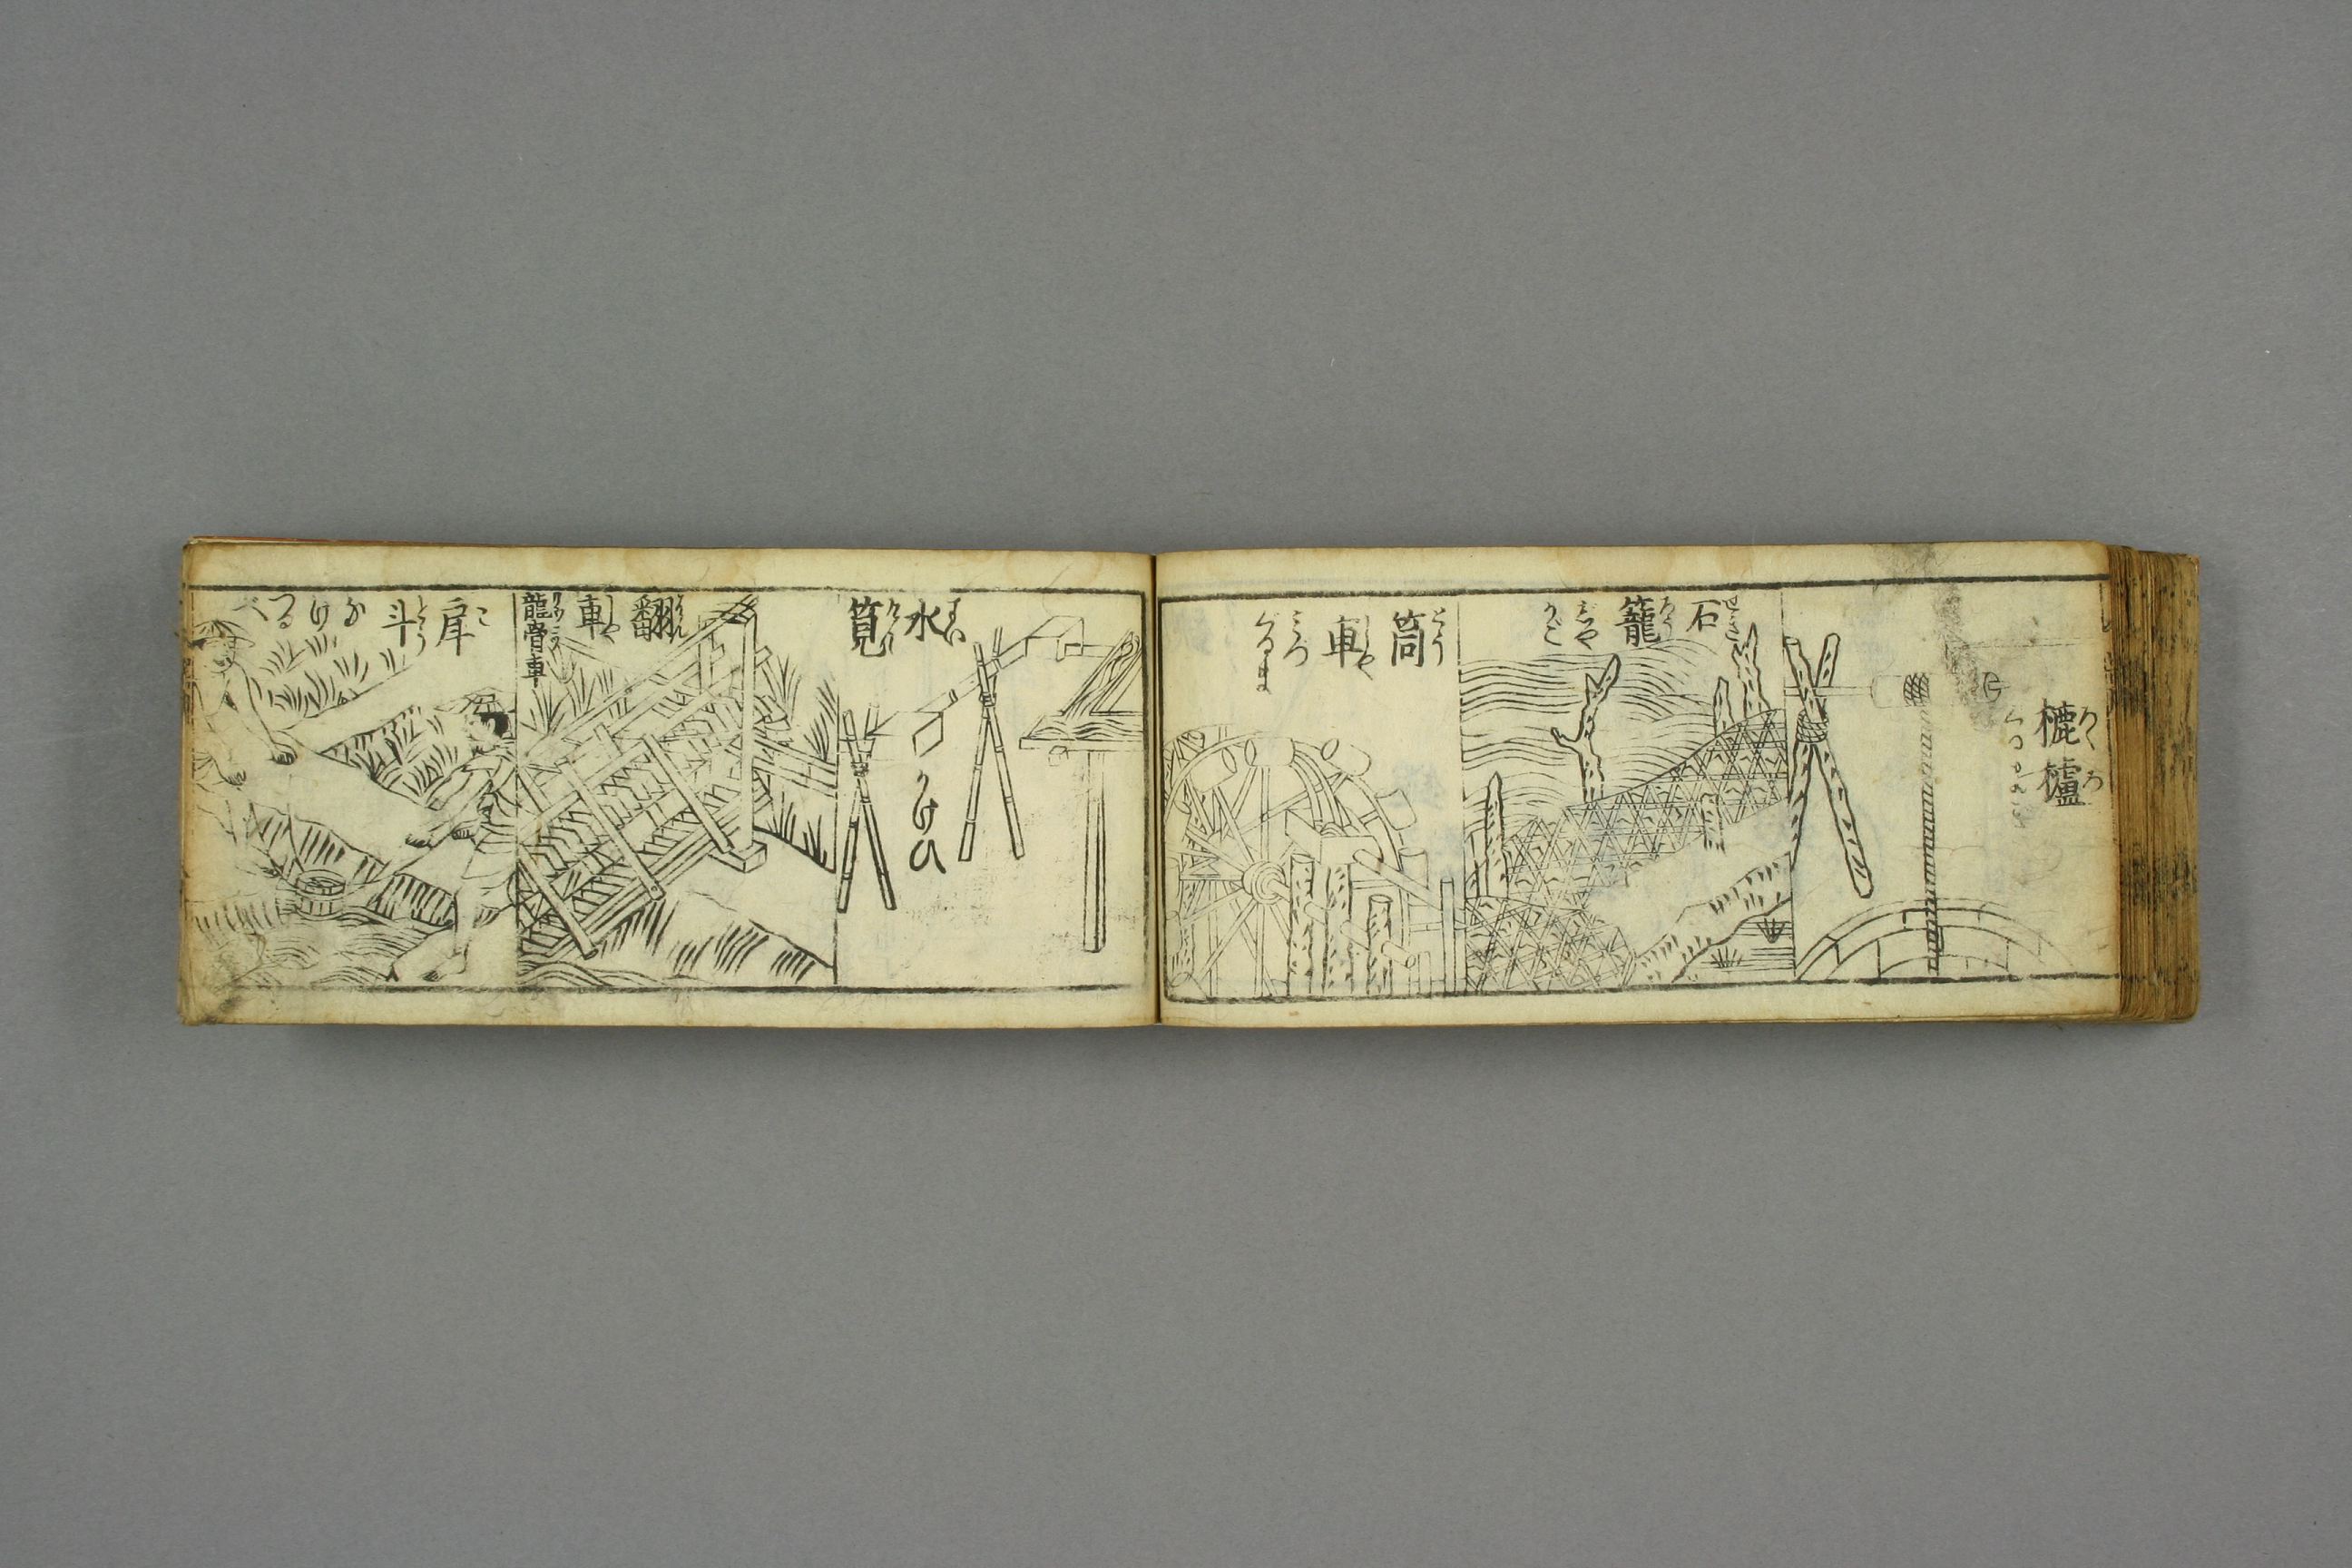 轆轤
ろくろ
石籠
せきろう
じやかご
筒車
とうしや
みづぐるま
水筧
すいけん
かけひ
翻車
はんしや
龍骨車
りうこつ
戽斗
ことう
なげつるべ